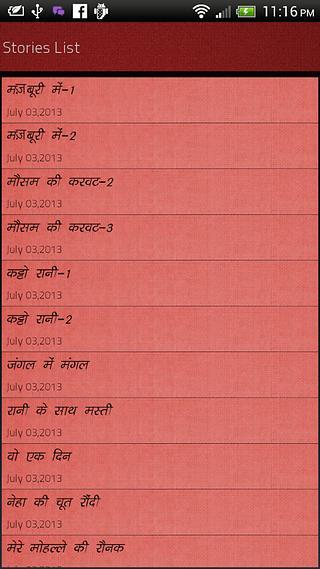 11:16 PM
Stories List
मज़बूरी में-1
July 03,2013
मज़बूरी में-2
July 03,2013
मौसम की करवट-2
July 03,2013
मौसम की करवट-3
July 03,2013
कट्टो रानी-1
July 03,2013
कट्टो रानी-2
July 03,2013
जंगल में मंगल
July 03,2013
रानी के साथ मस्ती
July 03,2013
वो एक दिन
July 03,2013
नेहा की चूत रौंदी
July 03,2013
मेरे मोहल्ले की रौनक